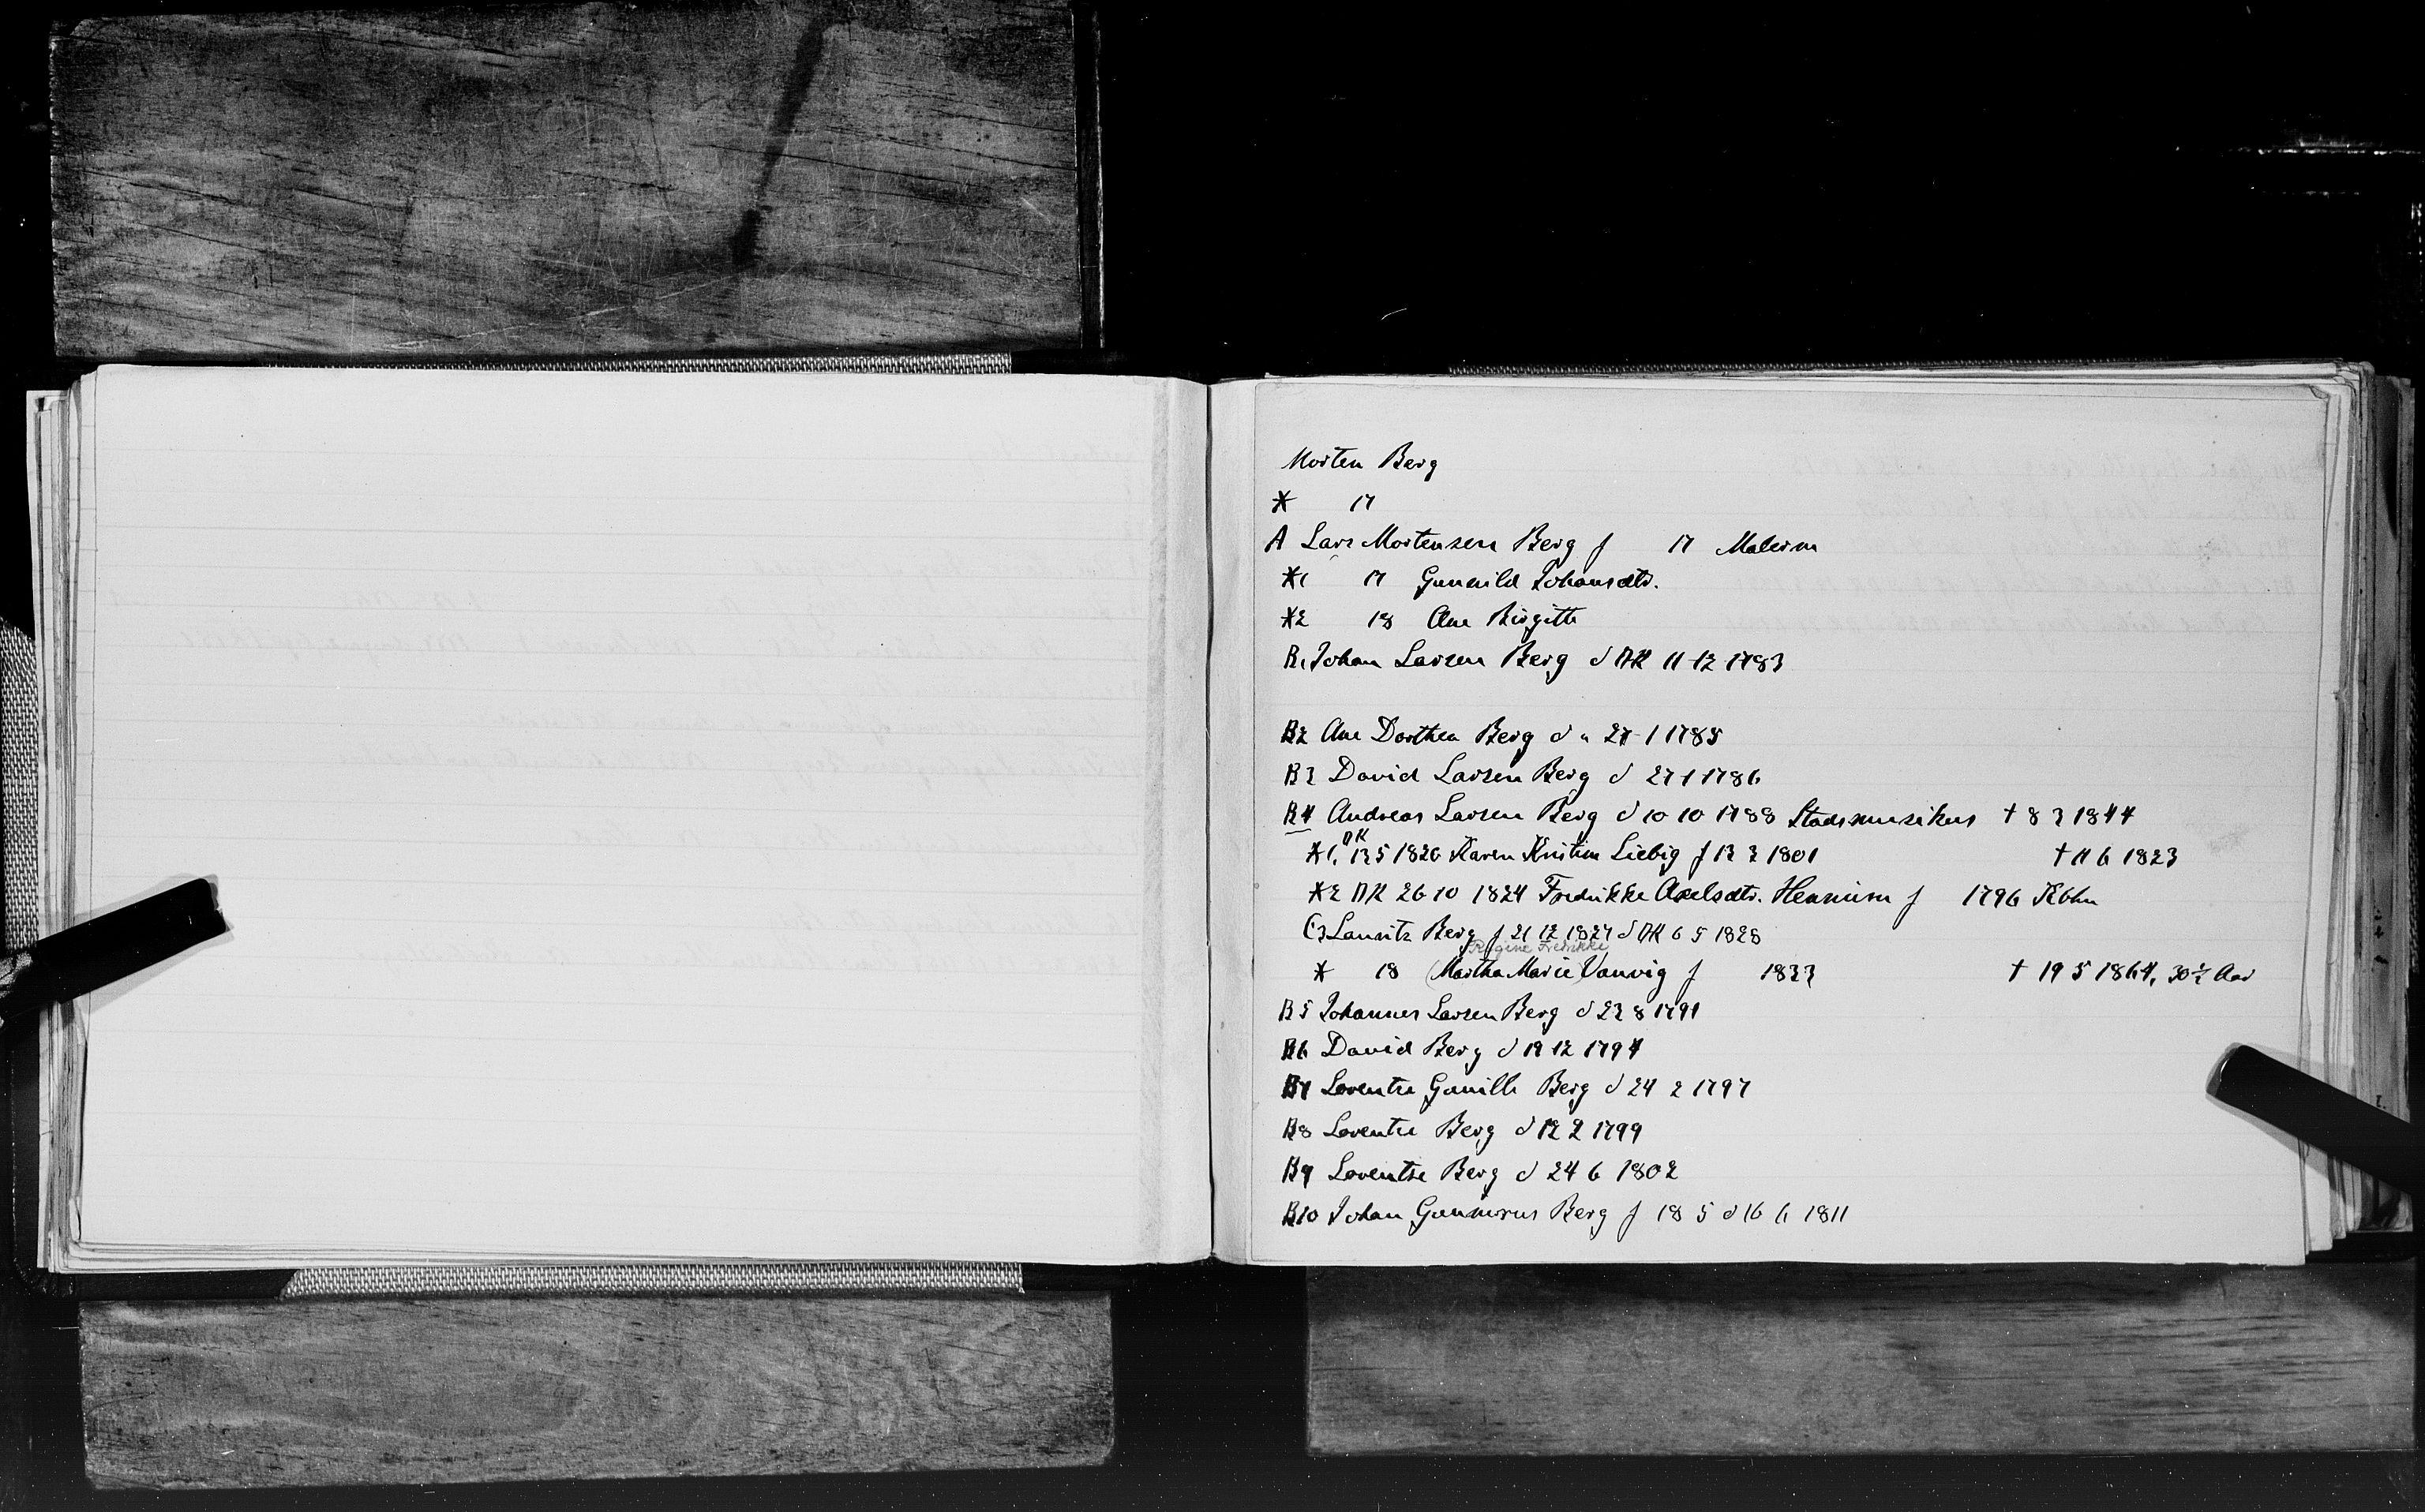 Morten Berg
* 17
A Lars Mortensen Berg f 17 Malerm
*1 17 Gunnild Johansdtr.
*2 18 Ane Birgitte
B1 Johan Larsen Berg d DK 11 12 1783
B2 Ane Dorthea Berg d " 27 1 1785
B3 David Larsen Berg d 27 1 1786
B4 Andreas Larsen Berg d 10 10 1788 Stadsmusikus † 8 3 1844
*1. DK 13 5 1820 Karen Kristine Liebig f 13 3 1801 † 11 6 1823
*2 DK 26 10 1824 Fredrikke Axelsdtr. Hennum f 1796 Kbhn
C3 Lauritz Berg f 21 12 1827 d DK 6 5 1828
Regine Fredrikke
* 18 (Martha Marie) Vanvig f 1833 † 19 5 1864, 30½ Aar
B5 Johannes Larsen Berg d 23 8 1791
B6 David Berg d 19 12 1794
B7 Loventse Gunille Berg d 24 2 1797
B8 Loventse Berg d 12 2 1799
B9 Loventse Berg d 24 6 1802
B10 Johan Gunnerus Berg f 18 5 d 16 6 1811